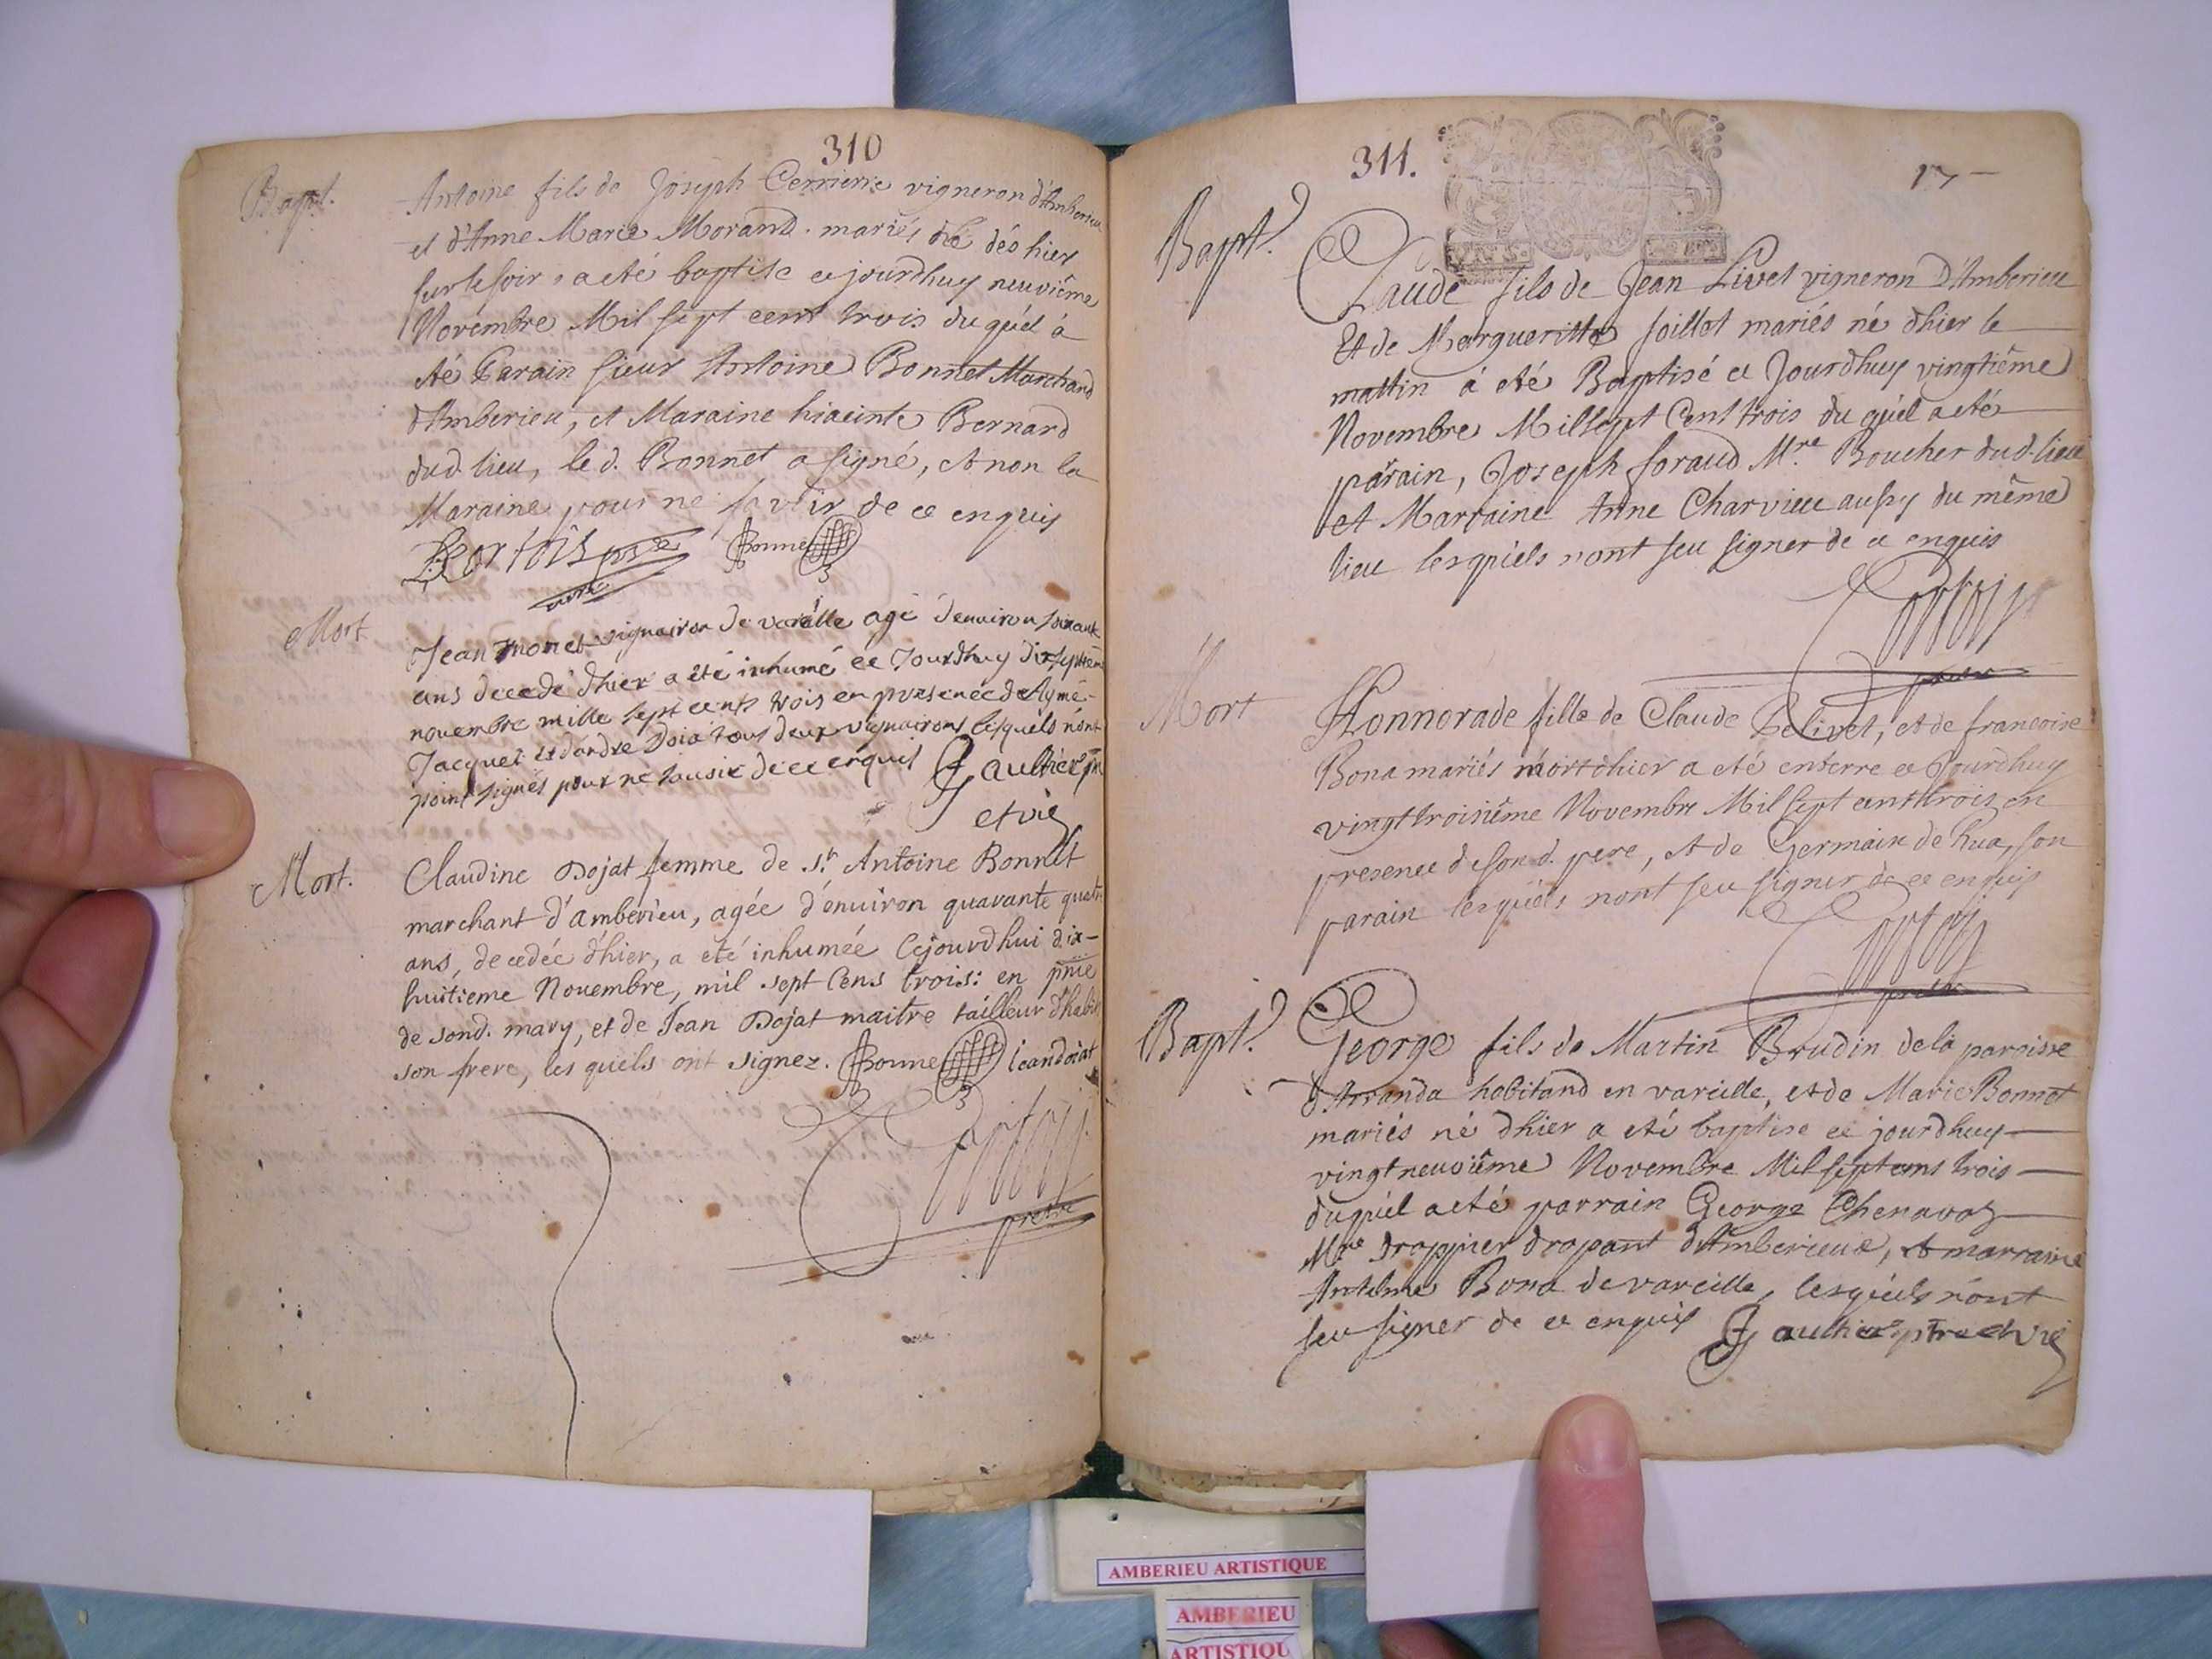 310
Bapt.
Antoine fils de Joseph vigneron d'Amberieu
et d'Anne Marie Morand mariés né dés hier
sur le soir a eté baptise ce jourdhuy neuviême
Novembre Mil sept cent trois duquél à
été Parain sieur Antoine Bonnet Marchand
d'Amberieu, et Maraine hiacinte Bernard
dud. lieu, le d. Bonnet a signé, et non la
Maraine pour ne savoir de ce enquis
Bonnet
Mort
Jean monet vignairon de vareille agé denuiron soixante
ans decedé dhier a été inhumé ce Jourdhuy dixseptiem
novembre mille sept cents trois en presence de Aymé
Jacquet et dandre Doia tous deux vignairons lesquels nónt
point signés pour né sauoir de ce enquis Gaultier
et vic
Mort.
Claudine Dojat femme de Sr. Antoine Bonnet
marchant d'amberieu, agée d'énuiron quarante quatre
ans, decedée d'hier, a eté inhumée Cejourdhui dix-
huitieme Nouembre, mil sept Cens trois: en pnce
de sond. mary, et de Jean Dojat maitre tailleur d'habit
son frere, les quels ont signez. Bonnet Jean doiat
prestre
311.
17
Bapt.
Claude fils de Jean Livet vigneron D'Amberieu
Et de Margueritte Joillot mariés né dhier le
mattin á eté Baptisé ce Jourdhuy vingtiême
Novembre Mil sept Cent trois du quél a eté
parain, Joseph foraud Mre. Boucher dud. lieu
et Marraine Anne Charvieu aussy du même
lieu lesquéls nont seu signer de ce enquis
prestre
Mort
Honnorade fille de Claude Delivet, et de francoise
Bona mariés mort dhier a eté enterre ce Jourdhuy
vingt troisiême Novembre Mil sept cent trois en
presence de son d. pere, et de Germain de Rua, son
parain lesquéls nont seu signer de ce enquis
prestre
Bapt.
George fils de Martin Brudin de la paroisse
d'Arranda habitand en vareille, et de Marie Bonnot
mariés né dhier a eté baptise ce jourdhuy
vingt neuviême Novembre Mil sept cens trois
duquél a eté parrain George Chenavaz
Mre. drappier drapant d'Amberieux, et marraine
Antelme Bona de vareille, lesquéls nónt
seu signer de ce enquis Gaultier ptre et vic
AMBERIEU ARTISTIQUE
AMBERIEU
ARTISTIQU